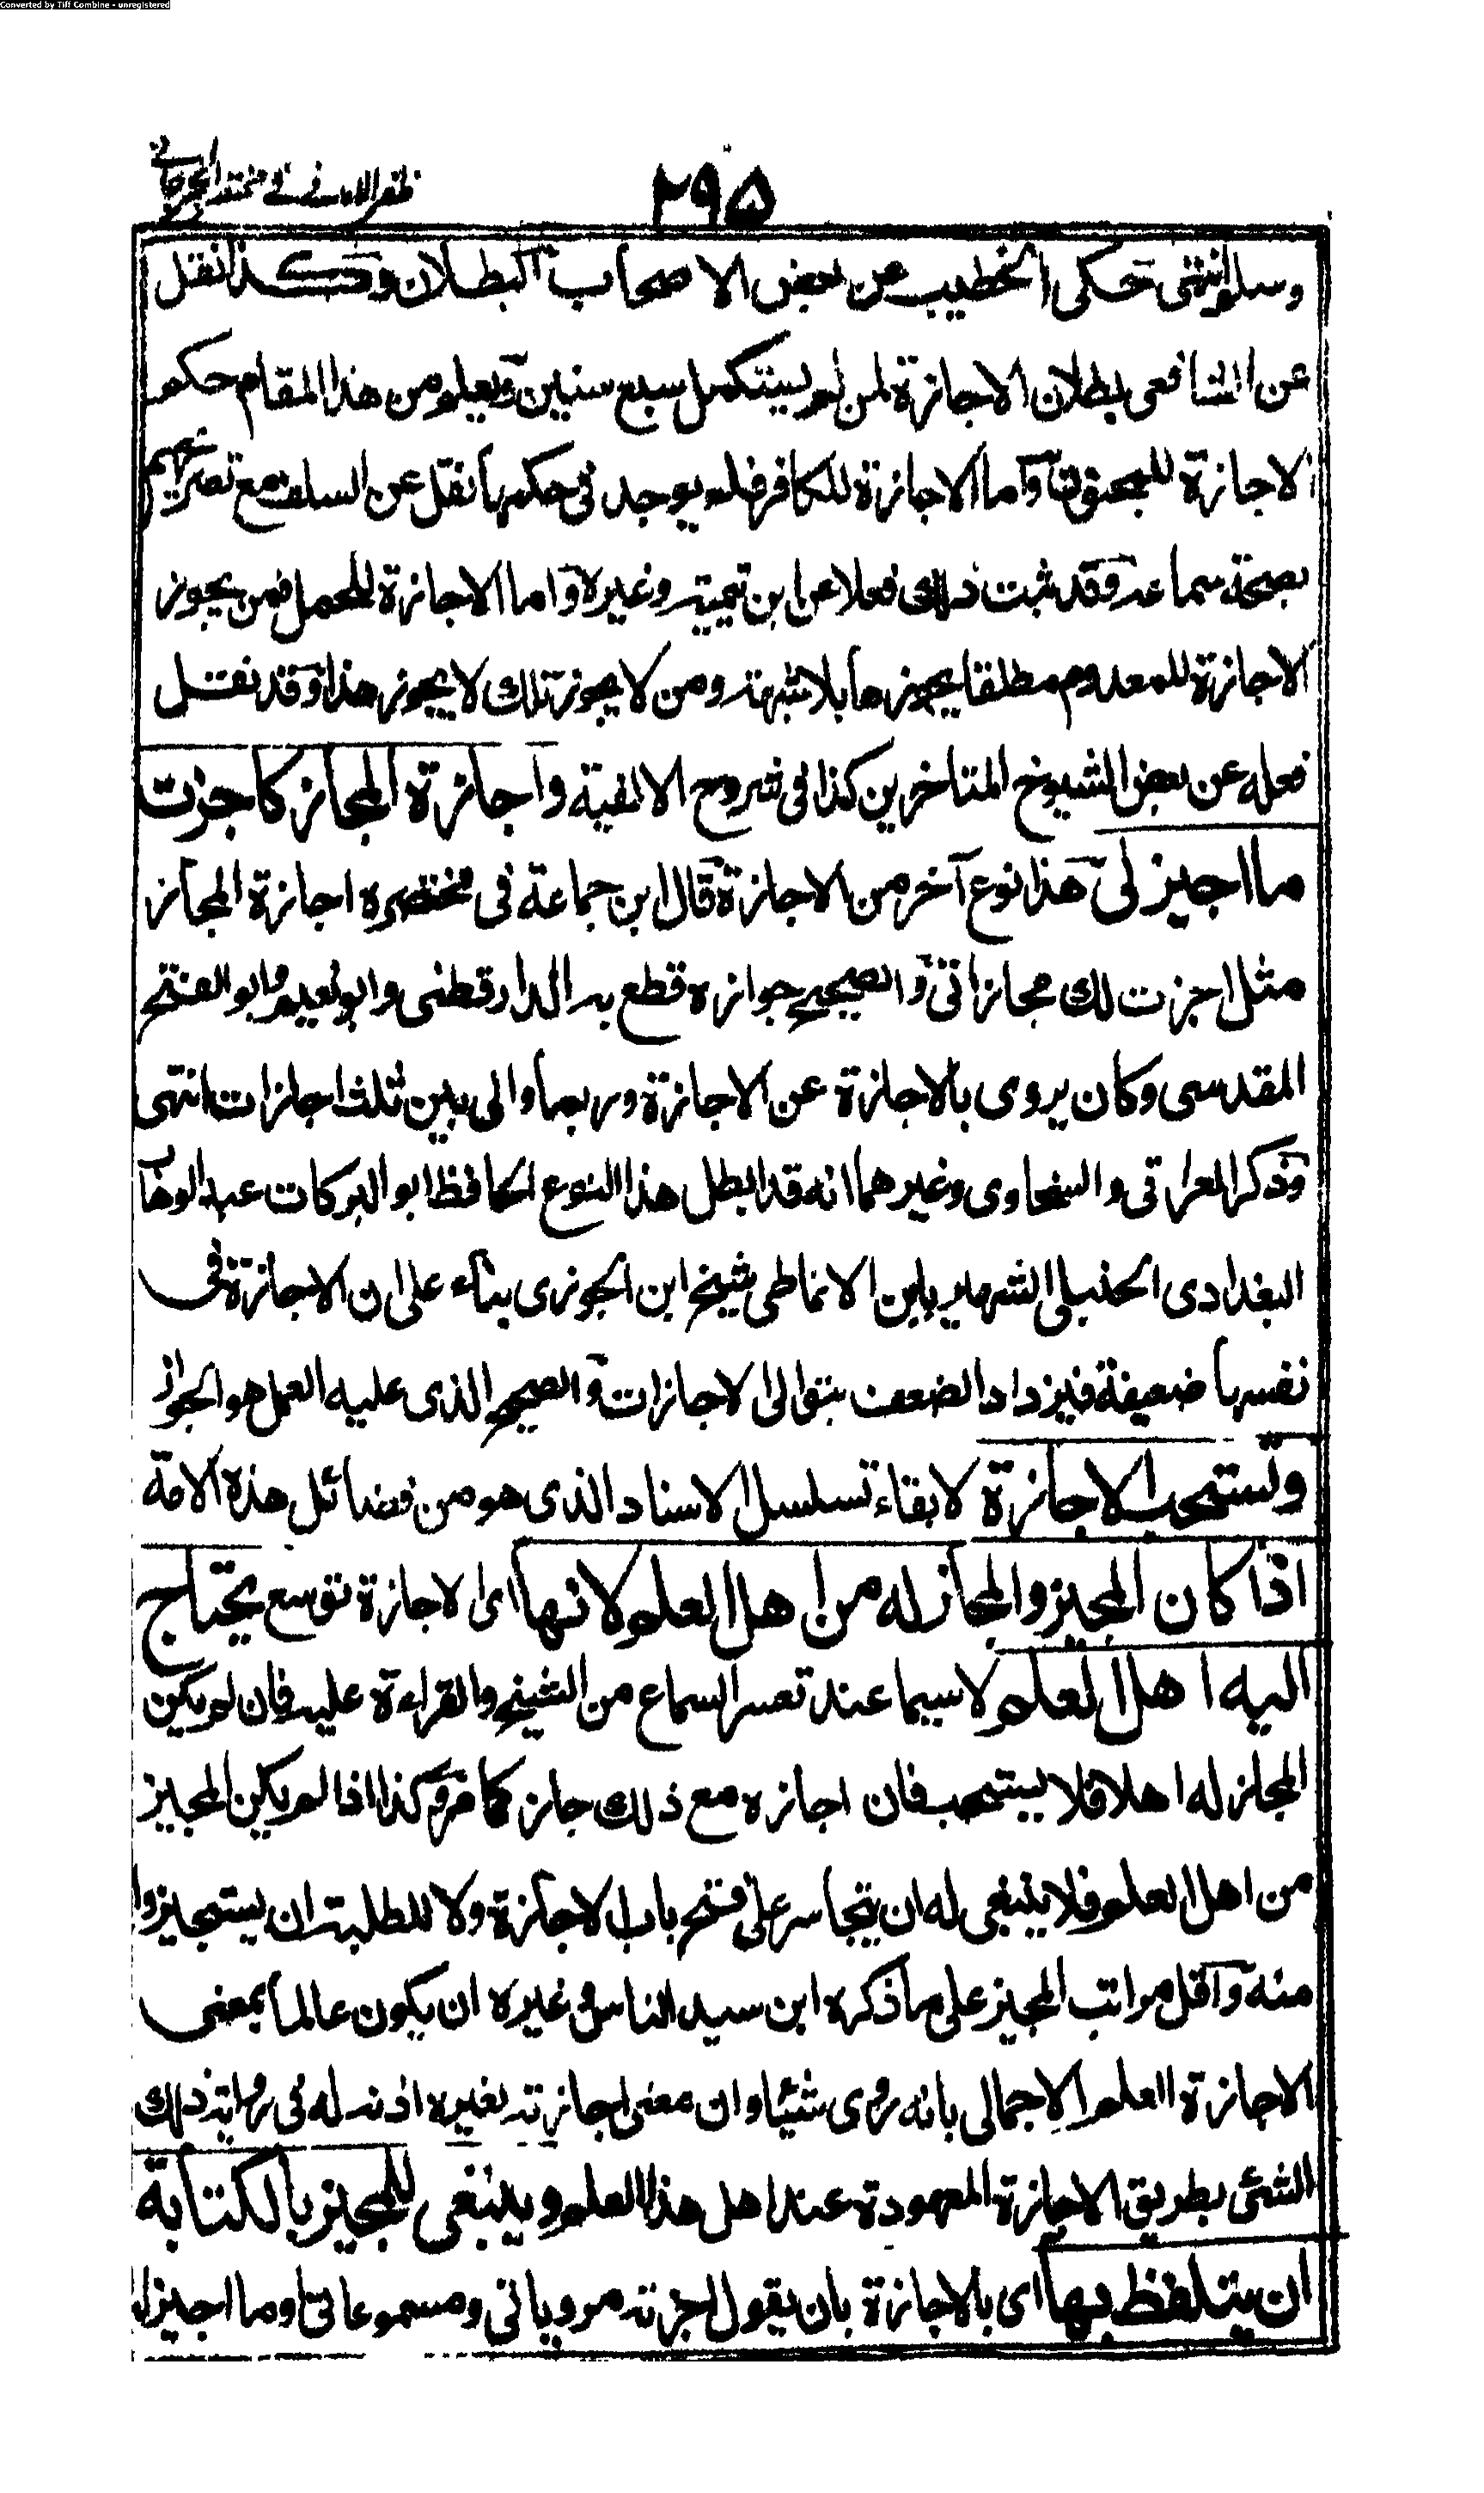 Converted by Tiff Combine - unregistered
ظفر الاماني في مختصر الجرجاني
۲۹۵
وسلم انتهى حكى الخطيب عن بعض الاصحاب البطلان وكذا نقل
عن الشافعى بطلان الاجازة لمن لم يستكمل سبع سنين ويعلم من هذا المقام حكم
الاجازة للمجنون واما الاجازة للكافر فلم يوجد فى حكمها نقل عن السلف مع تصريحهم
بصحة سماعه وقد ثبت ذلك فعلا عن ابن تيمية وغيره واما الاجازة للحمل فمن يجوز
الاجازة للمعدوم مطلقا يجوزها بلا شبهة ومن لا يجوز تلك لا يجوز هذا وقد نقل
فعله عن بعض الشيوخ المتاخرين كذا فى شروح الالفية واجازة المجاز كاجزت
ما اجيز لى هذا نوع آخر من الاجازة قال ابن جماعة فى مختصره اجازة المجاز
مثل اجزت لك مجازاتى والصحيح جوازه قطع به الدارقطنى وابو نعيم وابو الفتح
المقدسى وكان يروى بالاجازة عن الاجازة وربما والى بين ثلث اجازات انتهى
وذكر العراقى والسخاوى وغيرهما انه قد ابطل هذا النوع الحافظ ابو البركات عبد الوهاب
البغدادى الحنبلى الشهير بابن الانماطى شيخ ابن الجوزى بناء على ان الاجازة فى
نفسها ضعيفة فيزداد الضعف بتوالى الاجازات والصحيح الذى عليه العمل هو الجواز
وتستحب الاجازة لابقاء تسلسل الاسناد الذى هو من فضائل هذه الامة
اذا كان المجيز والمجاز له من اهل العلم لانها اى الاجازة توسع يحتاج
اليه اهل العلم لا سيما عند تعسر السماع من الشيخ والقراءة عليه فان لم يكن
المجاز له اهلا فلا يستحب فان اجازه مع ذلك جاز كما مر وكذا اذا لم يكن المجيز
من اهل العلم فلا ينبغى له ان يتجاسر على فتح باب الاجازة ولا للطلبة ان يستجيزوا
منه واقل مراتب المجيز على ما ذكره ابن سيد الناس وغيره ان يكون عالما بمعنى
الاجازة العلم الاجمالى بانه روى شيئا وان معنى اجازته لغيره اذنه له فى رواية ذلك
الشئ بطريق الاجازة المعهودة عند اهل هذا العلم وينبغى للمجيز بالكتابة
ان يتلفظ بها اى بالاجازة بان يقول اجزته مروياتى ومسموعاتى وما اجيز لى